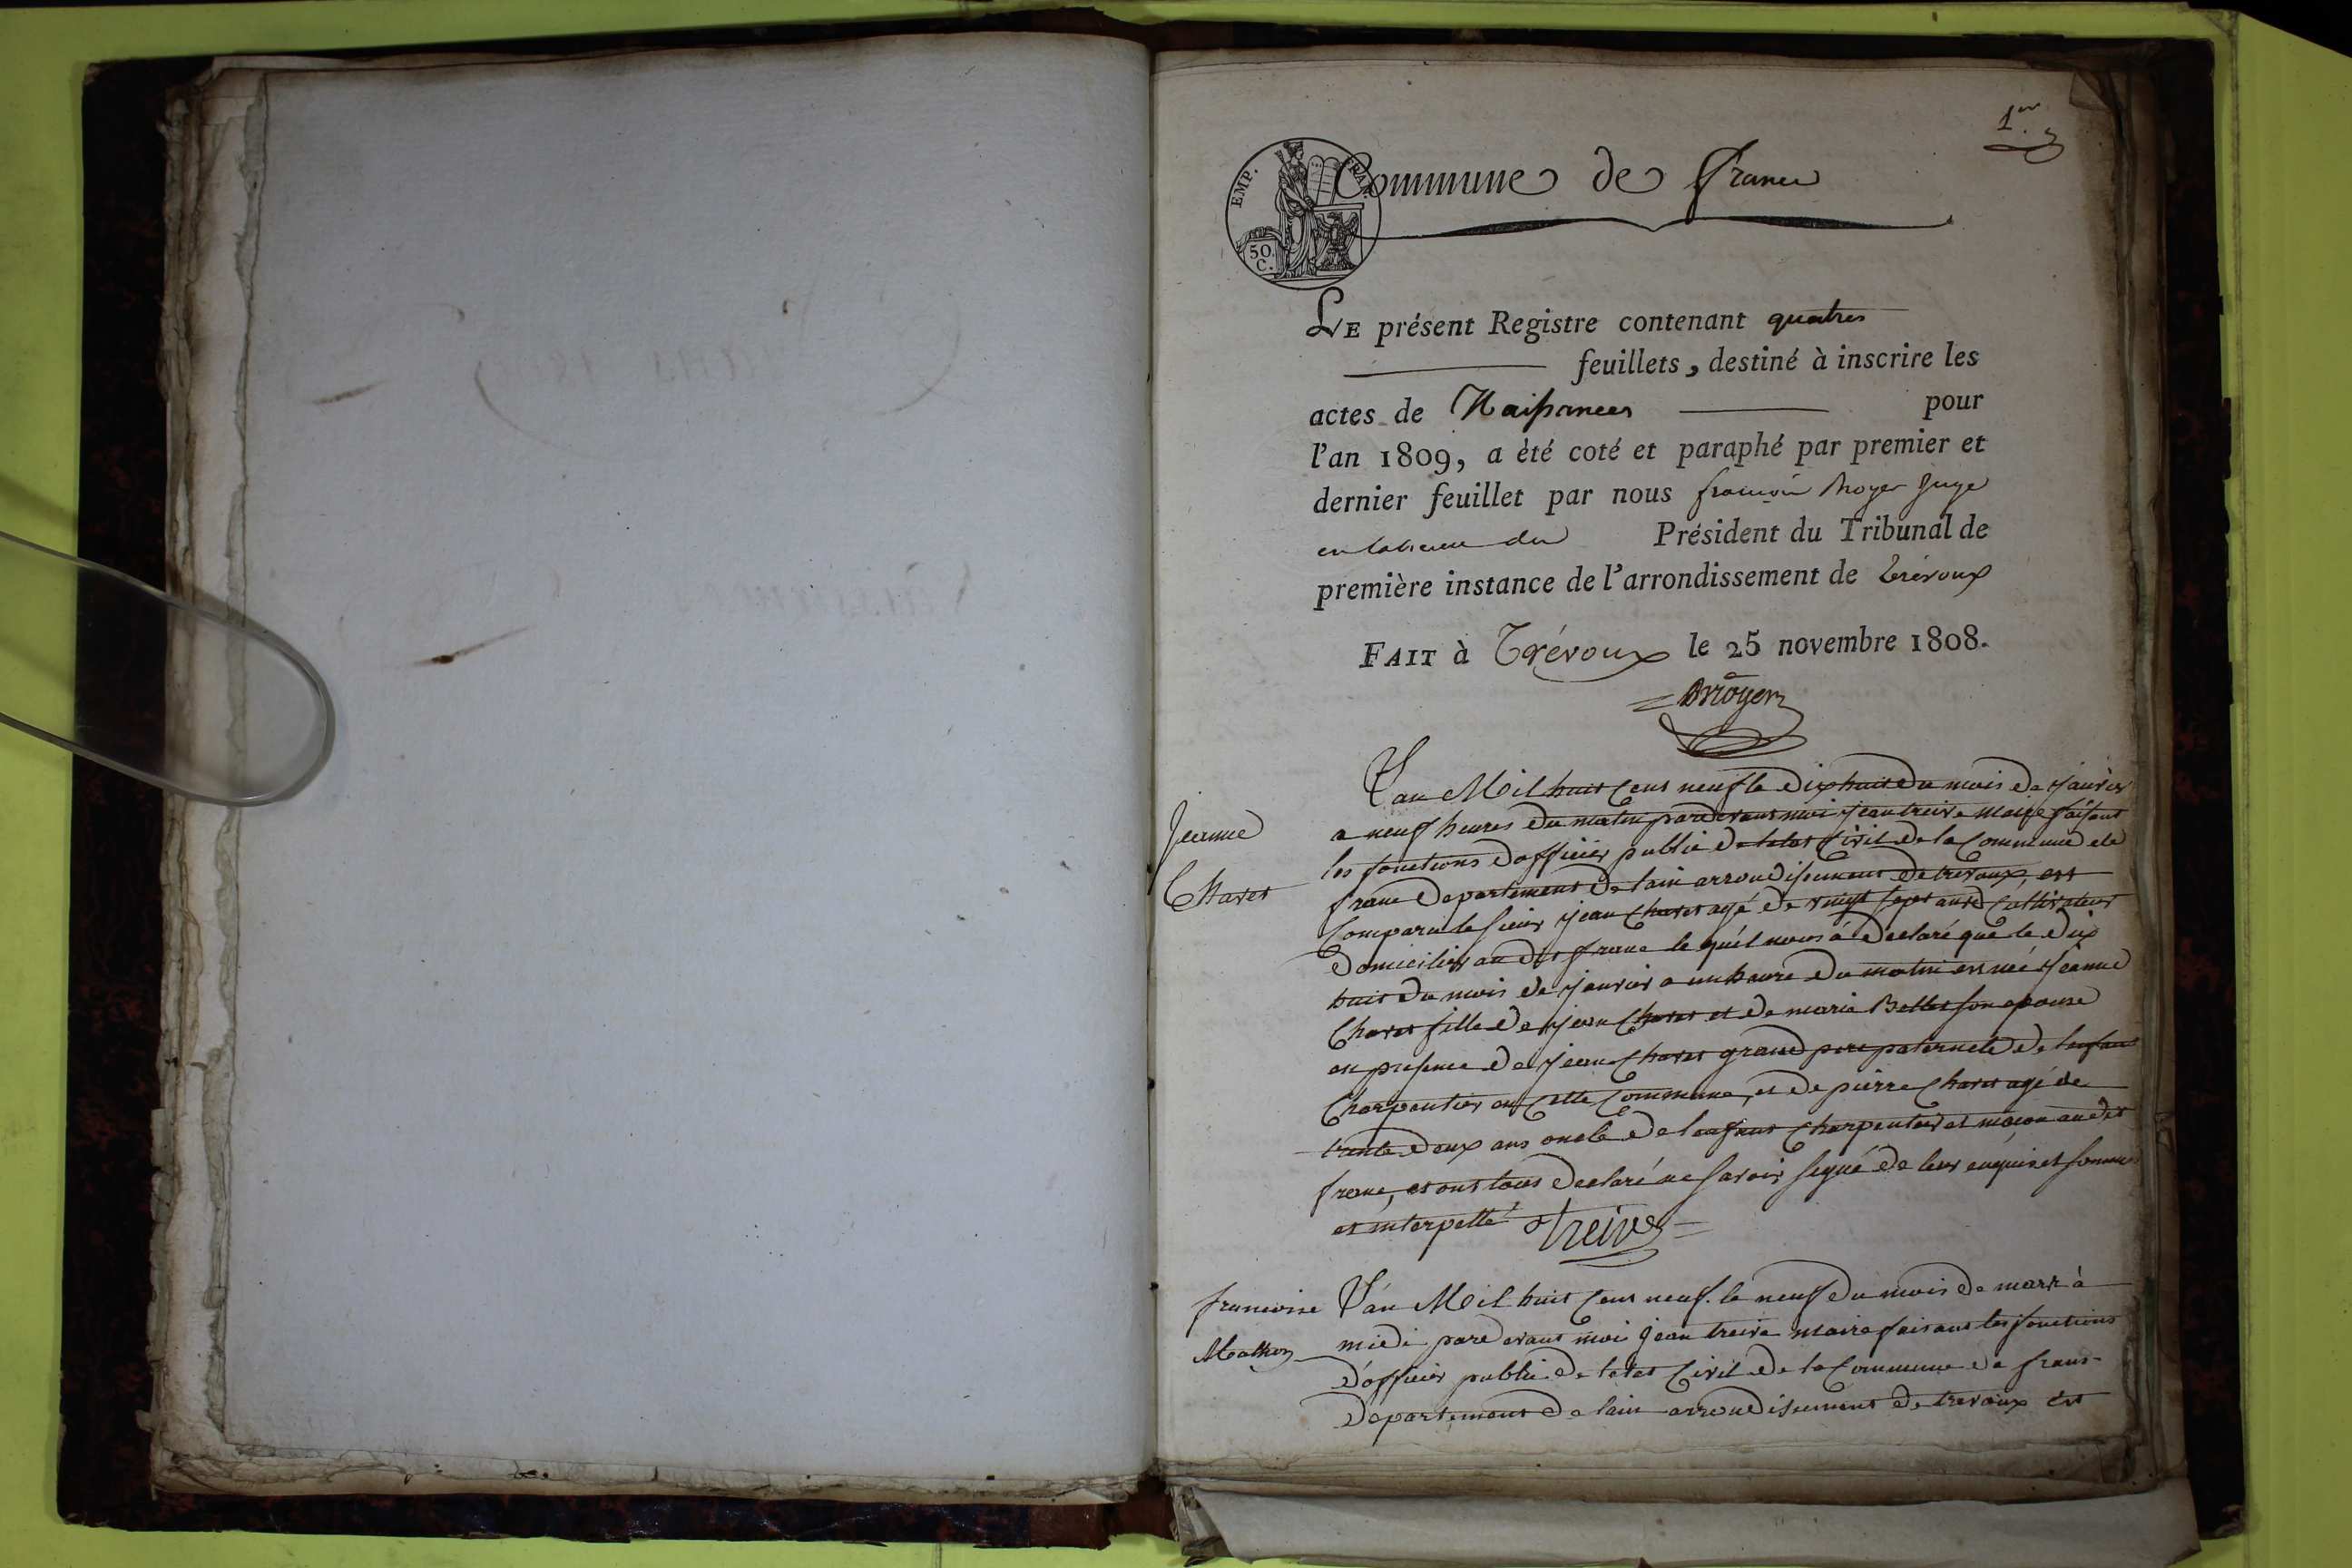 1er.
EMP. FRA.
50 C.
Commune de frans
LE présent Registre contenant quatres
feuillets, destiné à inscrire les
actes de Naissances pour
l'an 1809, a été coté et paraphé par premier et
dernier feuillet par nous françois Juge
Président du Tribunal de
première instance de l'arrondissement de trévoux
FAIT à Trévoux le 25 novembre 1808.
Jeanne
Chavet
L'an Mil huit Cent neuf le dix huit du mois de janvier
a neuf heures du matin pardevant moi jean treive maire faisant
les fonctions d'officier public de letat Civil de la Commune de
frans departement de lain arroudisement de trevoux, est
Comparu le sieur jean Chavet agé de vingt sept ans Cultivateur
domicilier au dit frans le quel nous a déclaré que le dix
huit du mois de janvier a un heure du matin est née jeanne
Chavet fille de jean Chavet et de marie Bellet son epouse
en presence de jean Chavet grand pere paternele de lenfant
Charpentier en Cette Commune, et de pierre Chavet agé de
trente deux ans oncle de lenfant Charpentier et maçon au dit
frans, et ont tous declaré ne savoir signé de leur enquis et somme
et interpellé treive
francoise
Mathon
L'an Mil huit Cent neuf. le neuf du mois de mars à
midi pardevant moi jean treive maire faisant les fonctions
d'officier public de letat Civil de la Commune de frans
departement de lain arroudisement de trevoux est